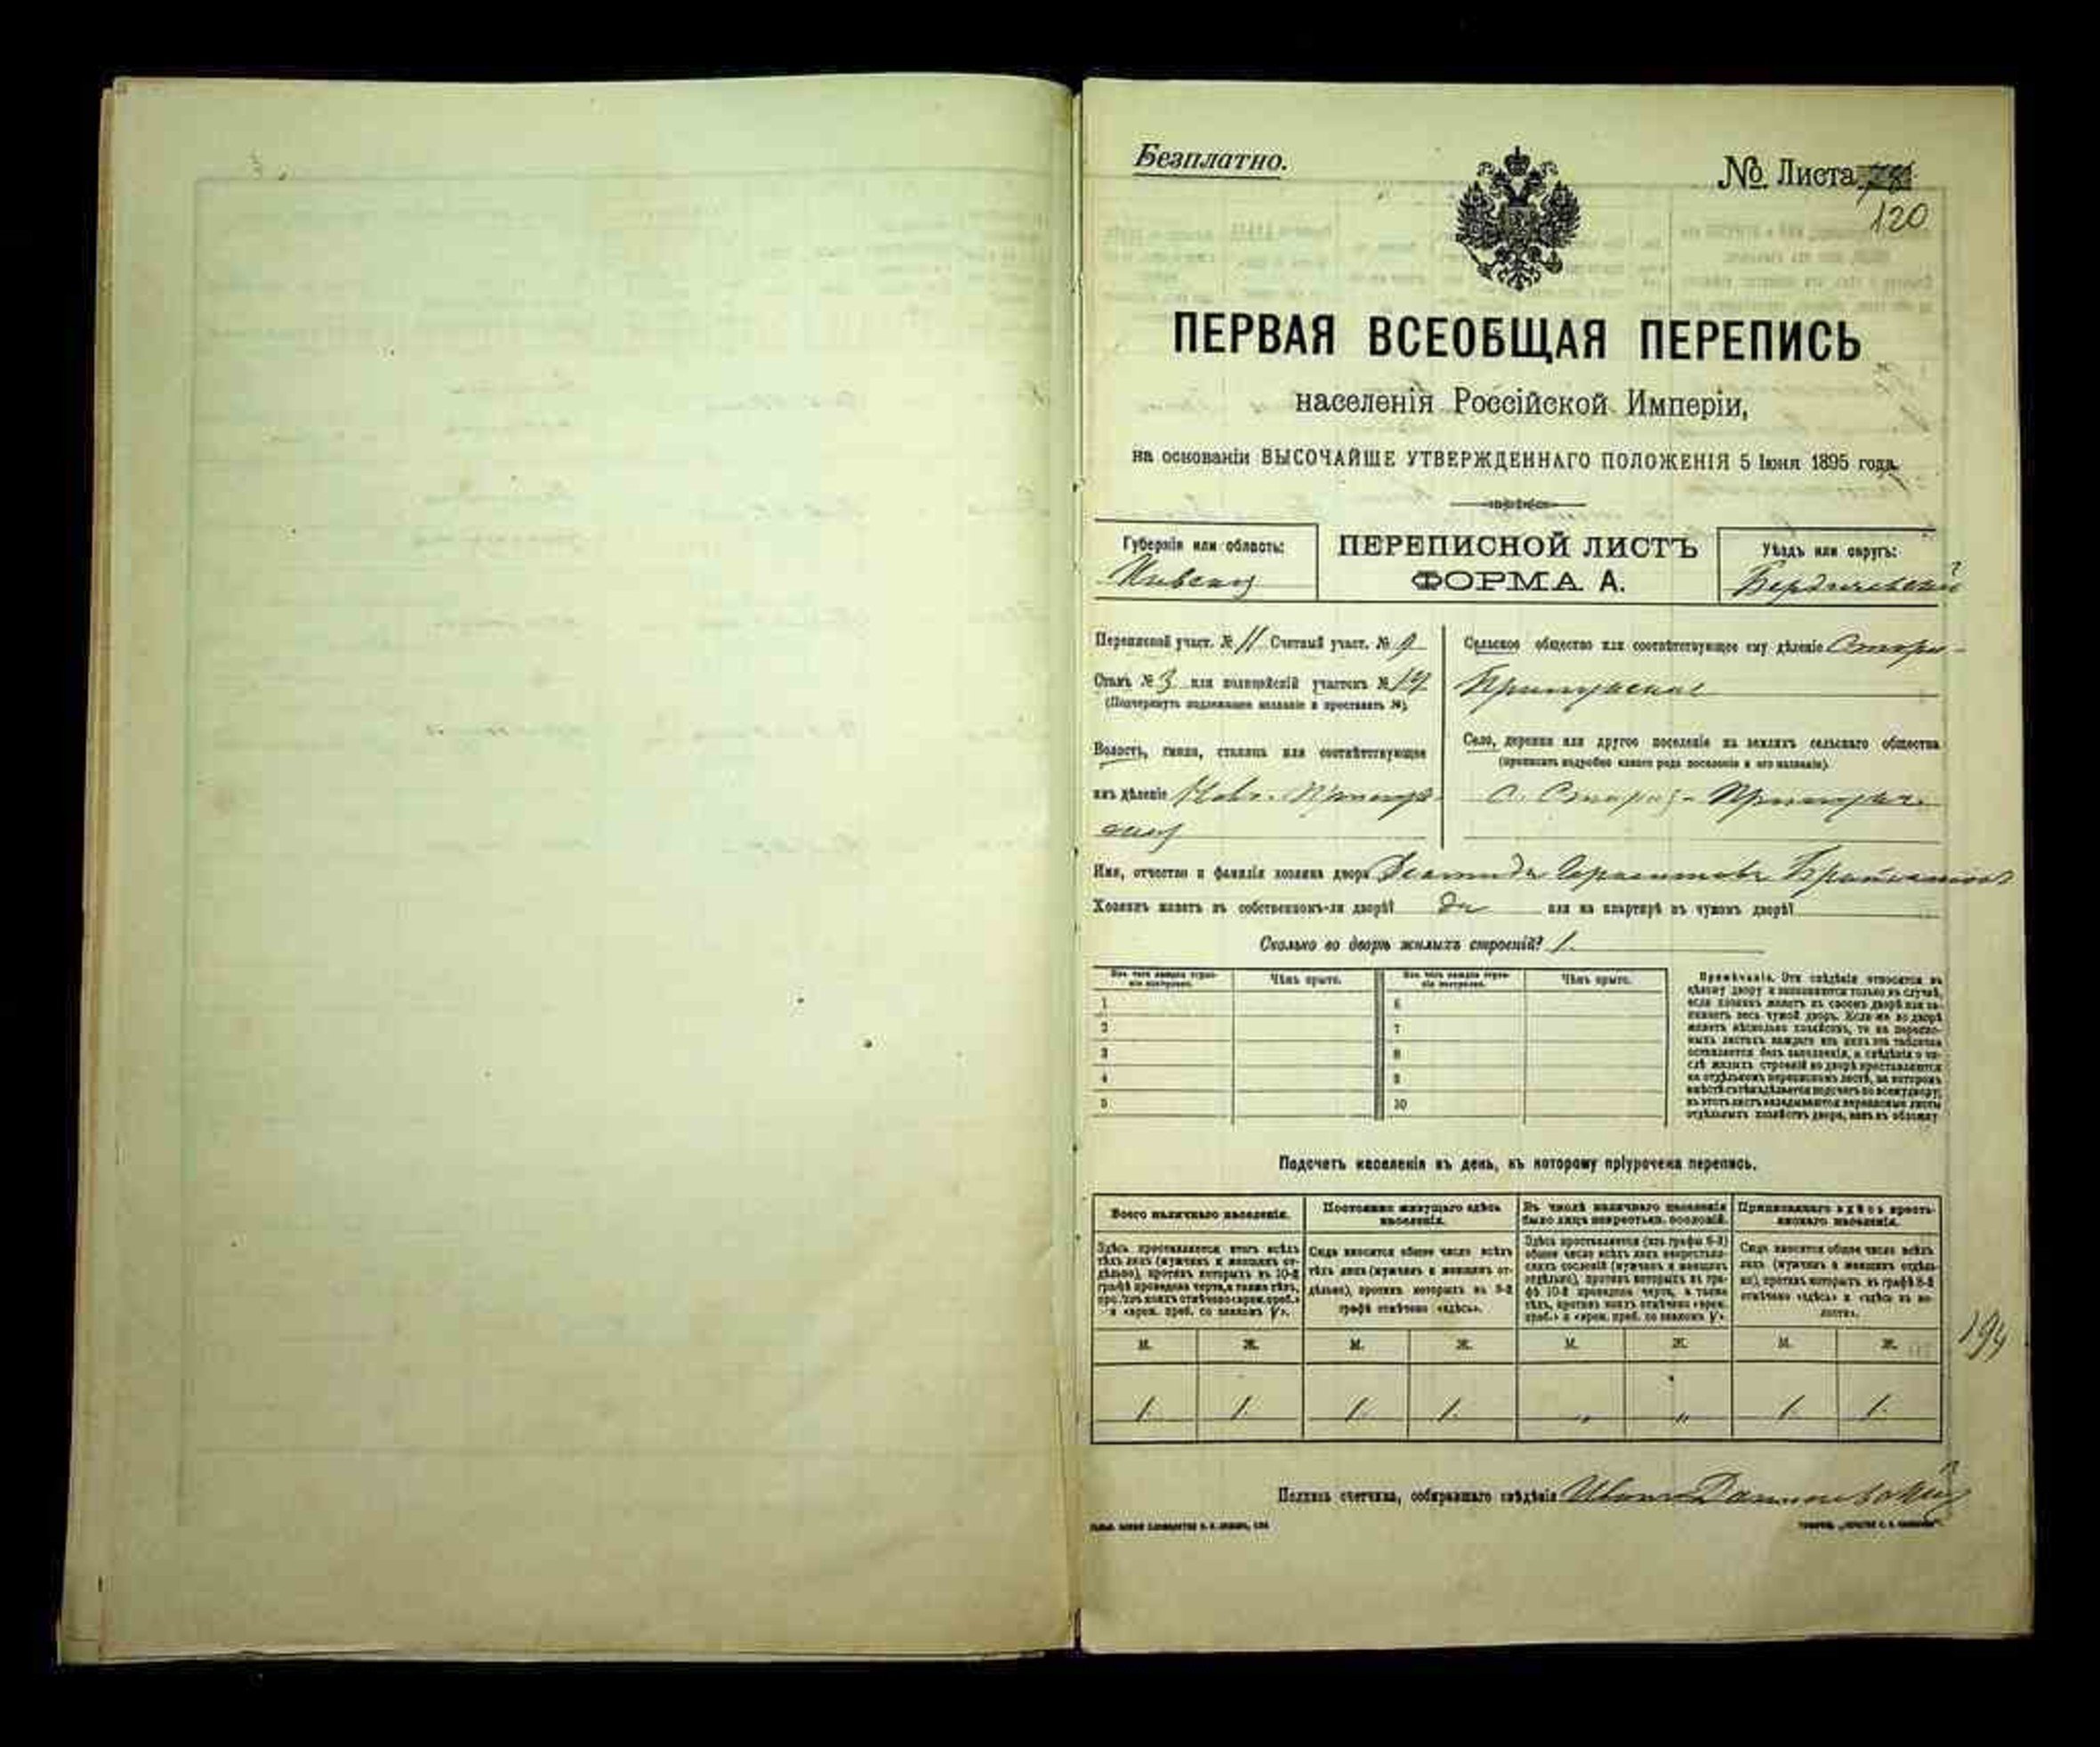 Безплатно.
№ Листа
120
ПЕРВАЯ ВСЕОБЩАЯ ПЕРЕПИСЬ
населенія Россійской Имперіи,
на основаніи ВЫСОЧАЙШЕ УТВЕРЖДЕННАГО ПОЛОЖЕНІЯ 5 Іюня 1895 года.
Губернія или область:
Киевская
ПЕРЕПИСНОЙ ЛИСТЪ
ФОРМА А.
Уѣздъ или округъ:
Бердичевский
Переписной участ. № 11 Счетный участ. № 9
Станъ № 3 или полицейскій участокъ №
(Подчеркнуть надлежащее названіе и проставить №).
Волость, гмина, станица или соотвѣтствующее
имъ дѣленіе
Сельское общество или соотвѣтствующее ему дѣленіе Старо-
Прилукское
Село, деревня или другое поселеніе на земляхъ сельскаго общества
(прописать подробно какого рода поселеніе и его названіе).
с. Старая-
Имя, отчество и фамилія хозяина двора
Хозяинъ живетъ въ собственномъ-ли дворѣ? да или на квартирѣ въ чужомъ дворѣ?
Сколько во дворѣ жилыхъ строеній? 1.
Изъ чего каждое строеніе построено.
Чѣмъ крыто.
Изъ чего каждое строеніе построено.
Чѣмъ крыто.
1 6
2 7
3 8
4 9
5 10
Примѣчаніе. Эти свѣдѣнія относятся къ
цѣлому двору и заполняются только въ случаѣ,
если хозяинъ живетъ въ своемъ дворѣ или за-
нимаетъ весь чужой дворъ. Если-же во дворѣ
живетъ нѣсколько хозяйствъ, то на перепис-
ныхъ листахъ каждаго изъ нихъ эта табличка
оставляется безъ заполненія, а свѣдѣнія о чи-
слѣ жилыхъ строеній во дворѣ проставляются
на отдѣльномъ переписномъ листѣ, на которомъ
вмѣстѣ съ тѣмъ дѣлается подсчетъ по всему двору;
въ этотъ листъ вкладываются переписные листы
отдѣльныхъ хозяйствъ двора, какъ въ обложку
Подсчетъ населенія въ день, къ которому пріурочена перепись.
Всего наличнаго населенія.
Постоянно живущаго здѣсь
населенія.
Въ числѣ наличнаго населенія
было лицъ некрестьян. сословій.
Приписаннаго здѣсь кресть-
янскаго населенія.
Здѣсь проставляется итогъ всѣхъ
тѣхъ лицъ (мужчинъ и женщинъ от-
дѣльно), противъ которыхъ въ 10-й
графѣ проведена черта, а также тѣхъ,
противъ коихъ отмѣчено «врем. преб.»
и «врем. преб. со знакомъ V».
Сюда вносится общее число всѣхъ
тѣхъ лицъ (мужчинъ и женщинъ от-
дѣльно), противъ которыхъ въ 9-й
графѣ отмѣчено «здѣсь».
Здѣсь проставляется (изъ графы 6-й)
общее число всѣхъ лицъ некрестьян-
скихъ сословій (мужчинъ и женщинъ
отдѣльно), противъ которыхъ въ гра-
фѣ 10-й проведена черта, а также
тѣхъ, противъ коихъ отмѣчено «врем.
преб.» и «врем. преб. со знакомъ V».
Сюда вносится общее число всѣхъ
лицъ (мужчинъ и женщинъ отдѣль-
но), противъ которыхъ въ графѣ 8-й
отмѣчено «здѣсь» и «здѣсь въ во-
лости».
М. Ж. М. Ж. М. Ж. М. Ж.
1. 1. 1. 1. " " 1. 1.
194
Подпись счетчика, собиравшаго свѣдѣнія